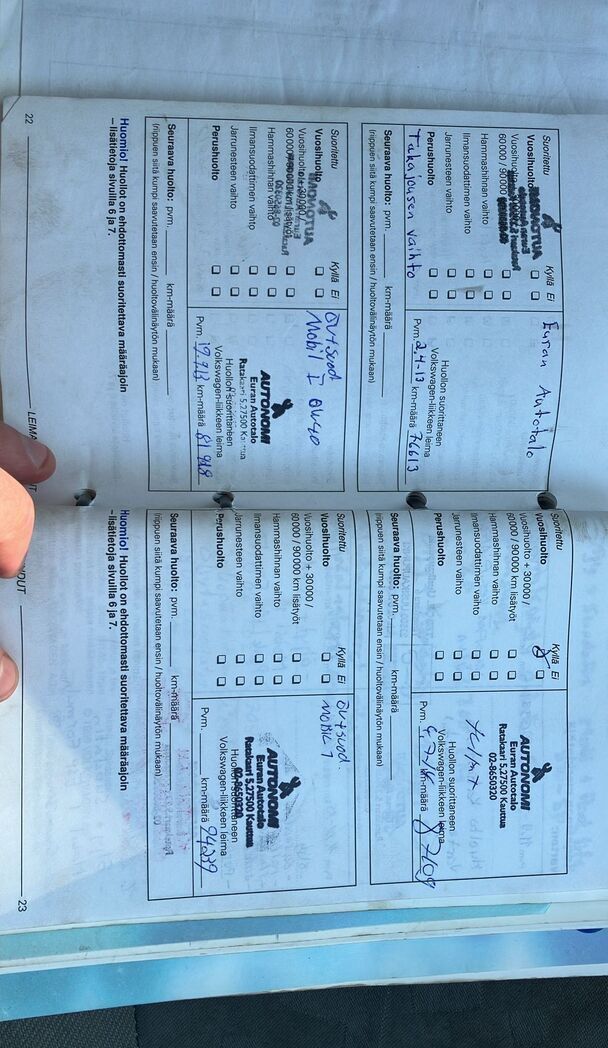 Suoritettu Kyllä Ei
Vuosihuolto
Vuosihuolto + 30 000 /
60 000 / 90 000 km lisätyöt
Hammashihnan vaihto
Ilmansuodattimen vaihto
Jarrunesteen vaihto
Perushuolto
Takajousen vaihto
Euran Autotalo
Huollon suorittaneen
Volkswagen-liikkeen leima
Pvm. 2.4-13 km-määrä 76613
Seuraava huolto: pvm. km-määrä
(riippuen siitä kumpi saavutetaan ensin / huoltovälinäytön mukaan)
Suoritettu Kyllä Ei
Vuosihuolto
Vuosihuolto + 30 000 /
60 000 / 90 000 km lisätyöt
Hammashihnan vaihto
Ilmansuodattimen vaihto
Jarrunesteen vaihto
Perushuolto
Öv+suod
Mobil 1 0W40
AUTONOMI
Euran Autotalo
Ratakaari 5,27500 Kauttua
Huollon suorittaneen
Volkswagen-liikkeen leima
Pvm. km-määrä
Seuraava huolto: pvm. km-määrä
(riippuen siitä kumpi saavutetaan ensin / huoltovälinäytön mukaan)
Huomio! Huollot on ehdottomasti suoritettava määräajoin
– lisätietoja sivuilla 6 ja 7.
22
Suoritettu Kyllä Ei
Vuosihuolto
Vuosihuolto + 30 000 /
60 000 / 90 000 km lisätyöt
Hammashihnan vaihto
Ilmansuodattimen vaihto
Jarrunesteen vaihto
Perushuolto
AUTONOMI
Euran Autotalo
Ratakaari 5,27500 Kauttua
02-8650320
Huollon suorittaneen
Volkswagen-liikkeen leima
Pvm. km-määrä
Seuraava huolto: pvm. km-määrä
(riippuen siitä kumpi saavutetaan ensin / huoltovälinäytön mukaan)
Suoritettu Kyllä Ei
Vuosihuolto
Vuosihuolto + 30 000 /
60 000 / 90 000 km lisätyöt
Hammashihnan vaihto
Ilmansuodattimen vaihto
Jarrunesteen vaihto
Perushuolto
Öv+suod.
Mobil 1
AUTONOMI
Euran Autotalo
Ratakaari 5,27500 Kauttua
02-8650320
Huollon suorittaneen
Volkswagen-liikkeen leima
Pvm. km-määrä 94239
Seuraava huolto: pvm. km-määrä
(riippuen siitä kumpi saavutetaan ensin / huoltovälinäytön mukaan)
Huomio! Huollot on ehdottomasti suoritettava määräajoin
– lisätietoja sivuilla 6 ja 7.
23